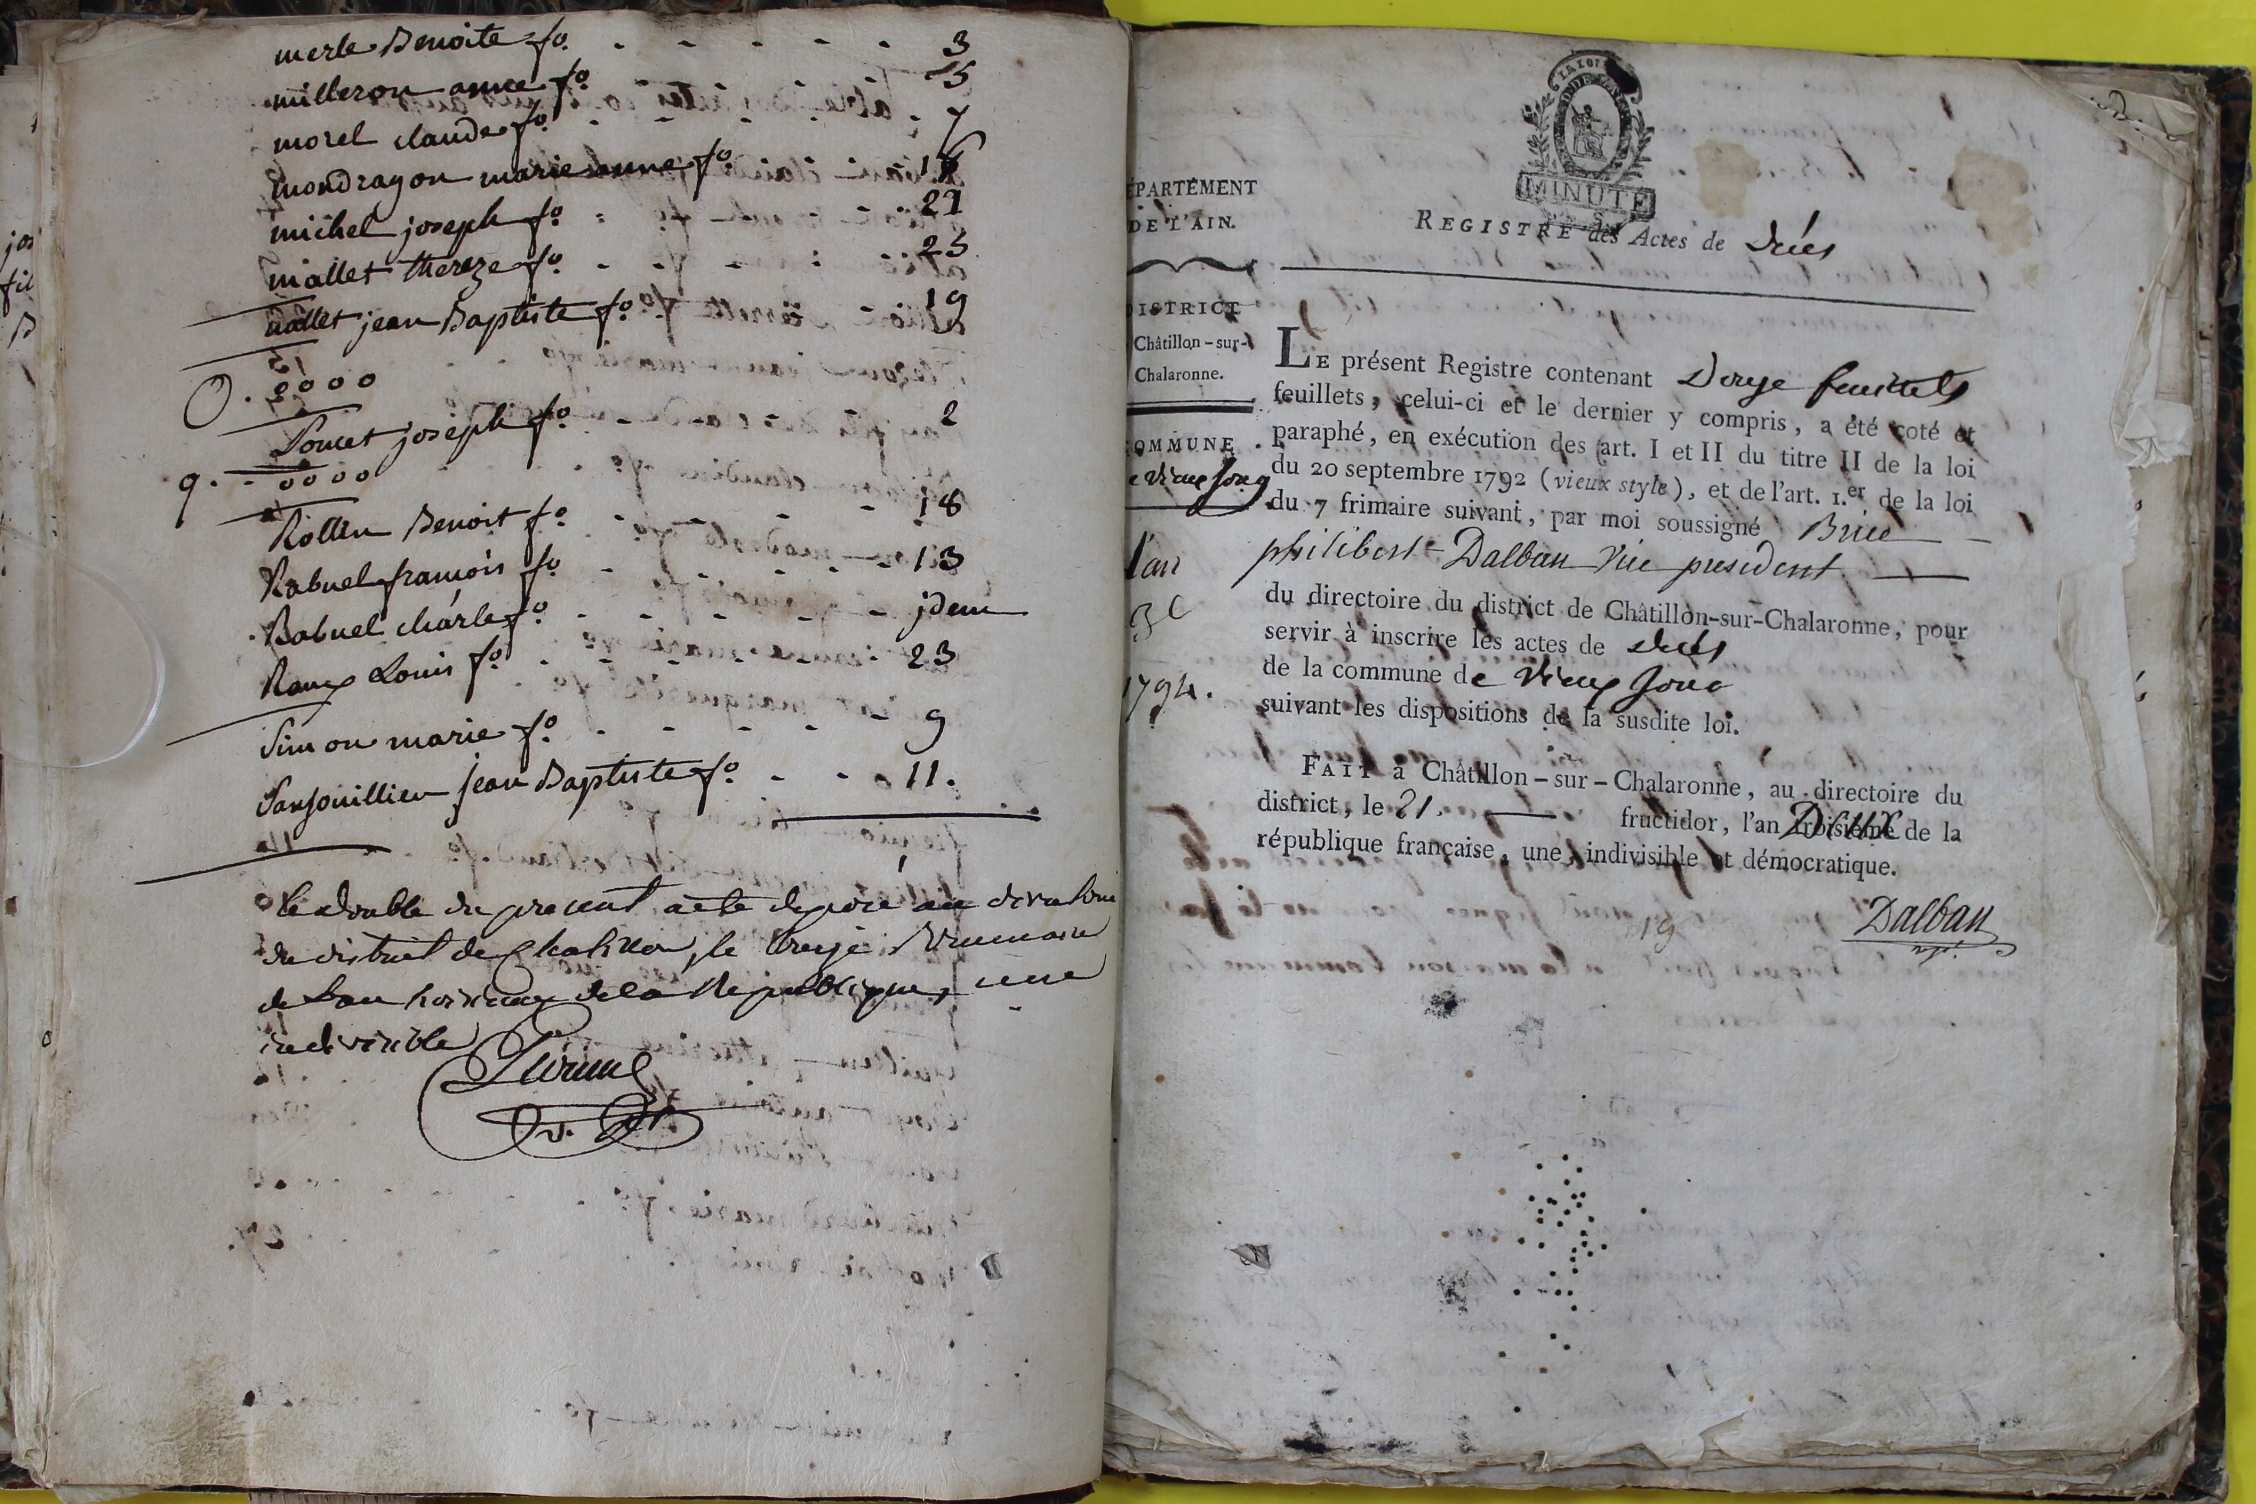 merle Benoite fo. - - - - - 3
milleron anne fo. 5
morel claude fo. - - - - - 7
mondragon marie anne fo. 1
michel joseph fo. 21
mallet thereze fo. - - - - 25
nallet jean Baptiste fo. 19
O. 0000
Poncet joseph fo. - - - 2
q. - 0000
Rollin Benoit fo. - - - - 18
Rabuel françois fo. - - - - 13
Rabuel charle fo. - - - - jdem
Roux Louis fo. - - - - 23
Simon marie fo. - - - - 9
jean Baptiste fo. - - 11.
le double du present acte deposé au
du district de Chatillon, le Brumaire
de Lan de la Republique, une
indivisible
MINUTE
DÉPARTEMENT
DE L'AIN.
REGISTRE des Actes de Décés
DISTRICT
Châtillon-sur-
Chalaronne.
COMMUNE
de Vieux Jonc
l'an
3e
1794.
LE présent Registre contenant Douze feuillets
feuillets, celui-ci et le dernier y compris, a été coté et
paraphé, en exécution des art. I et II du titre II de la loi
du 20 septembre 1792 (vieux style), et de l'art. 1.er de la loi
du 7 frimaire suivant, par moi soussigné Brice
philibert Dalban vice president
du directoire du district de Châtillon-sur-Chalaronne, pour
servir à inscrire les actes de Décés
de la commune de Vieux Jonc
suivant les dispositions de la susdite loi.
FAIT à Châtillon-sur-Chalaronne, au directoire du
district, le 21. fructidor, l'an Deux de la
république française, une, indivisible et démocratique.
19
Dalban